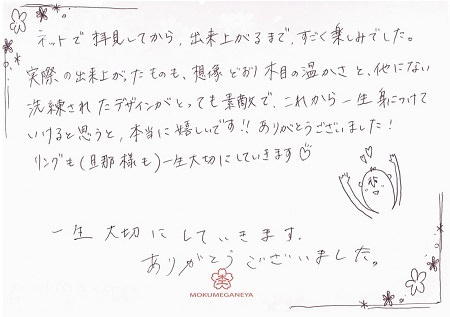 ネットで拝見してから、出来上がるまで、すごく楽しみでした。
実際の出来上がったものも、想像どおり木目の温かさと、他にない
洗練されたデザインがとっても素敵で、これから一生身につけて
いけると思うと、本当に嬉しいです!! ありがとうございました!
リングも(旦那様も)一生大切にしていきます♡
一生大切にしていきます.
ありがとうございました。
MOKUMEGANEYA